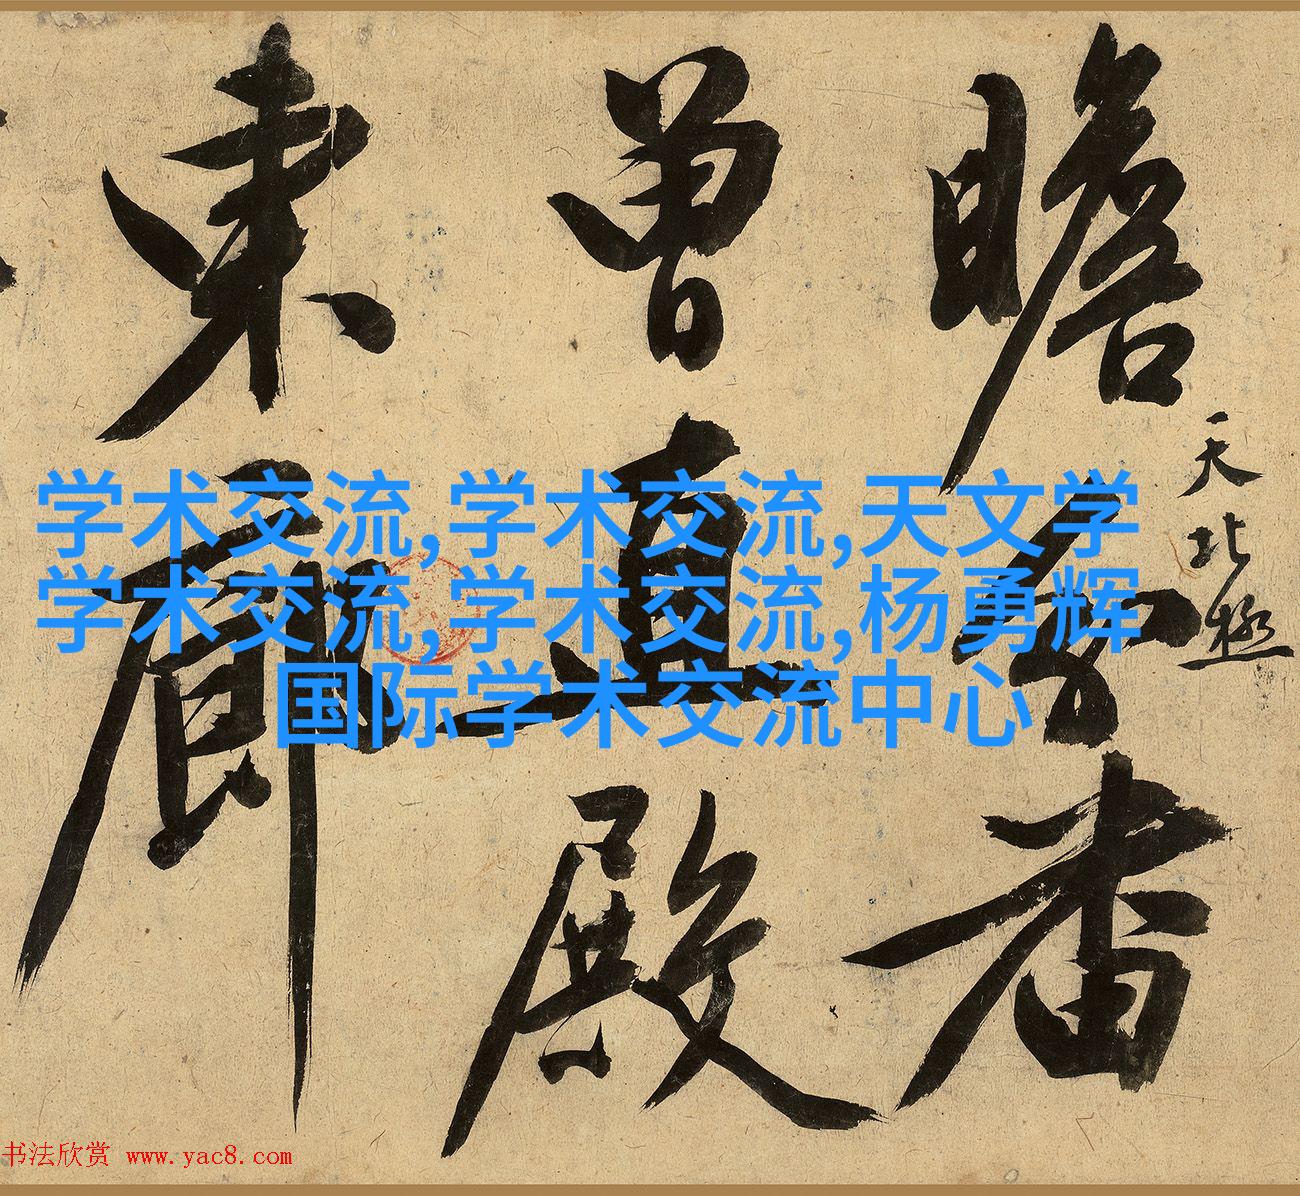 瞻
天北極
曾直殿
東廊
学术交流,学术交流,天文学
学术交流,学术交流,杨勇辉
国际学术交流中心
书法欣赏 www.yac8.com